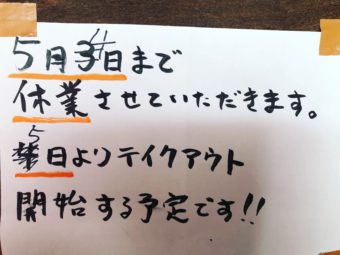 5月4日まで
休業させていただきます。
5日よりテイクアウト
開始する予定です!!